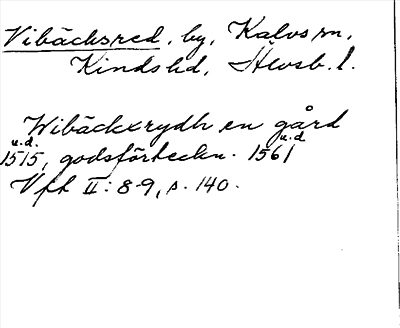 Vibäcksred, by, Kalvs sn,
Kinds hd, Älvsb. l.
Wibäckxrydh en gård
u.d. u.d.
1515, godsförteckn. 1561
Vfh II: 8-9, s. 140.